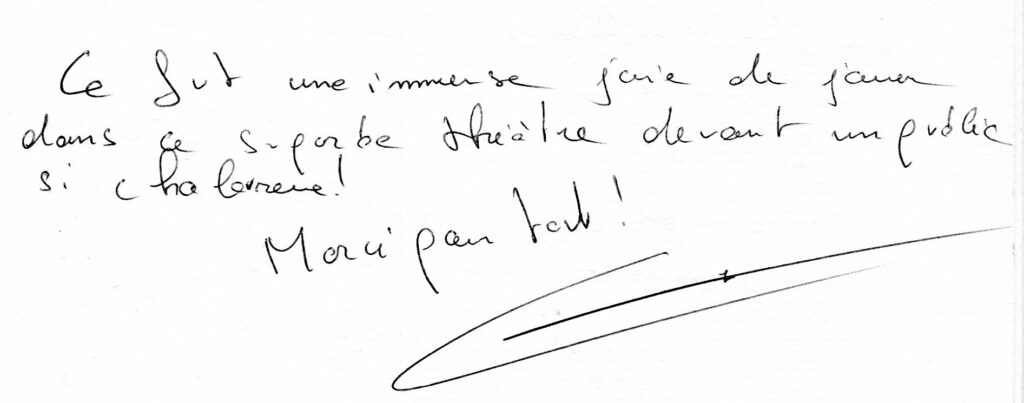 Ce fut une immense joie de jouer
dans ce superbe théâtre devant un public
si chaleureux!
Merci pour tout!